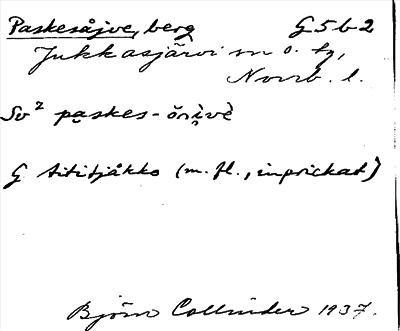 Paskesåjve, berg G5b2
Jukkasjärvi sn o. tg,
Norrb. l.
Sv² paskes-
G tititjåkko (m. fl., inprickat)
Björn Collinder 1937.